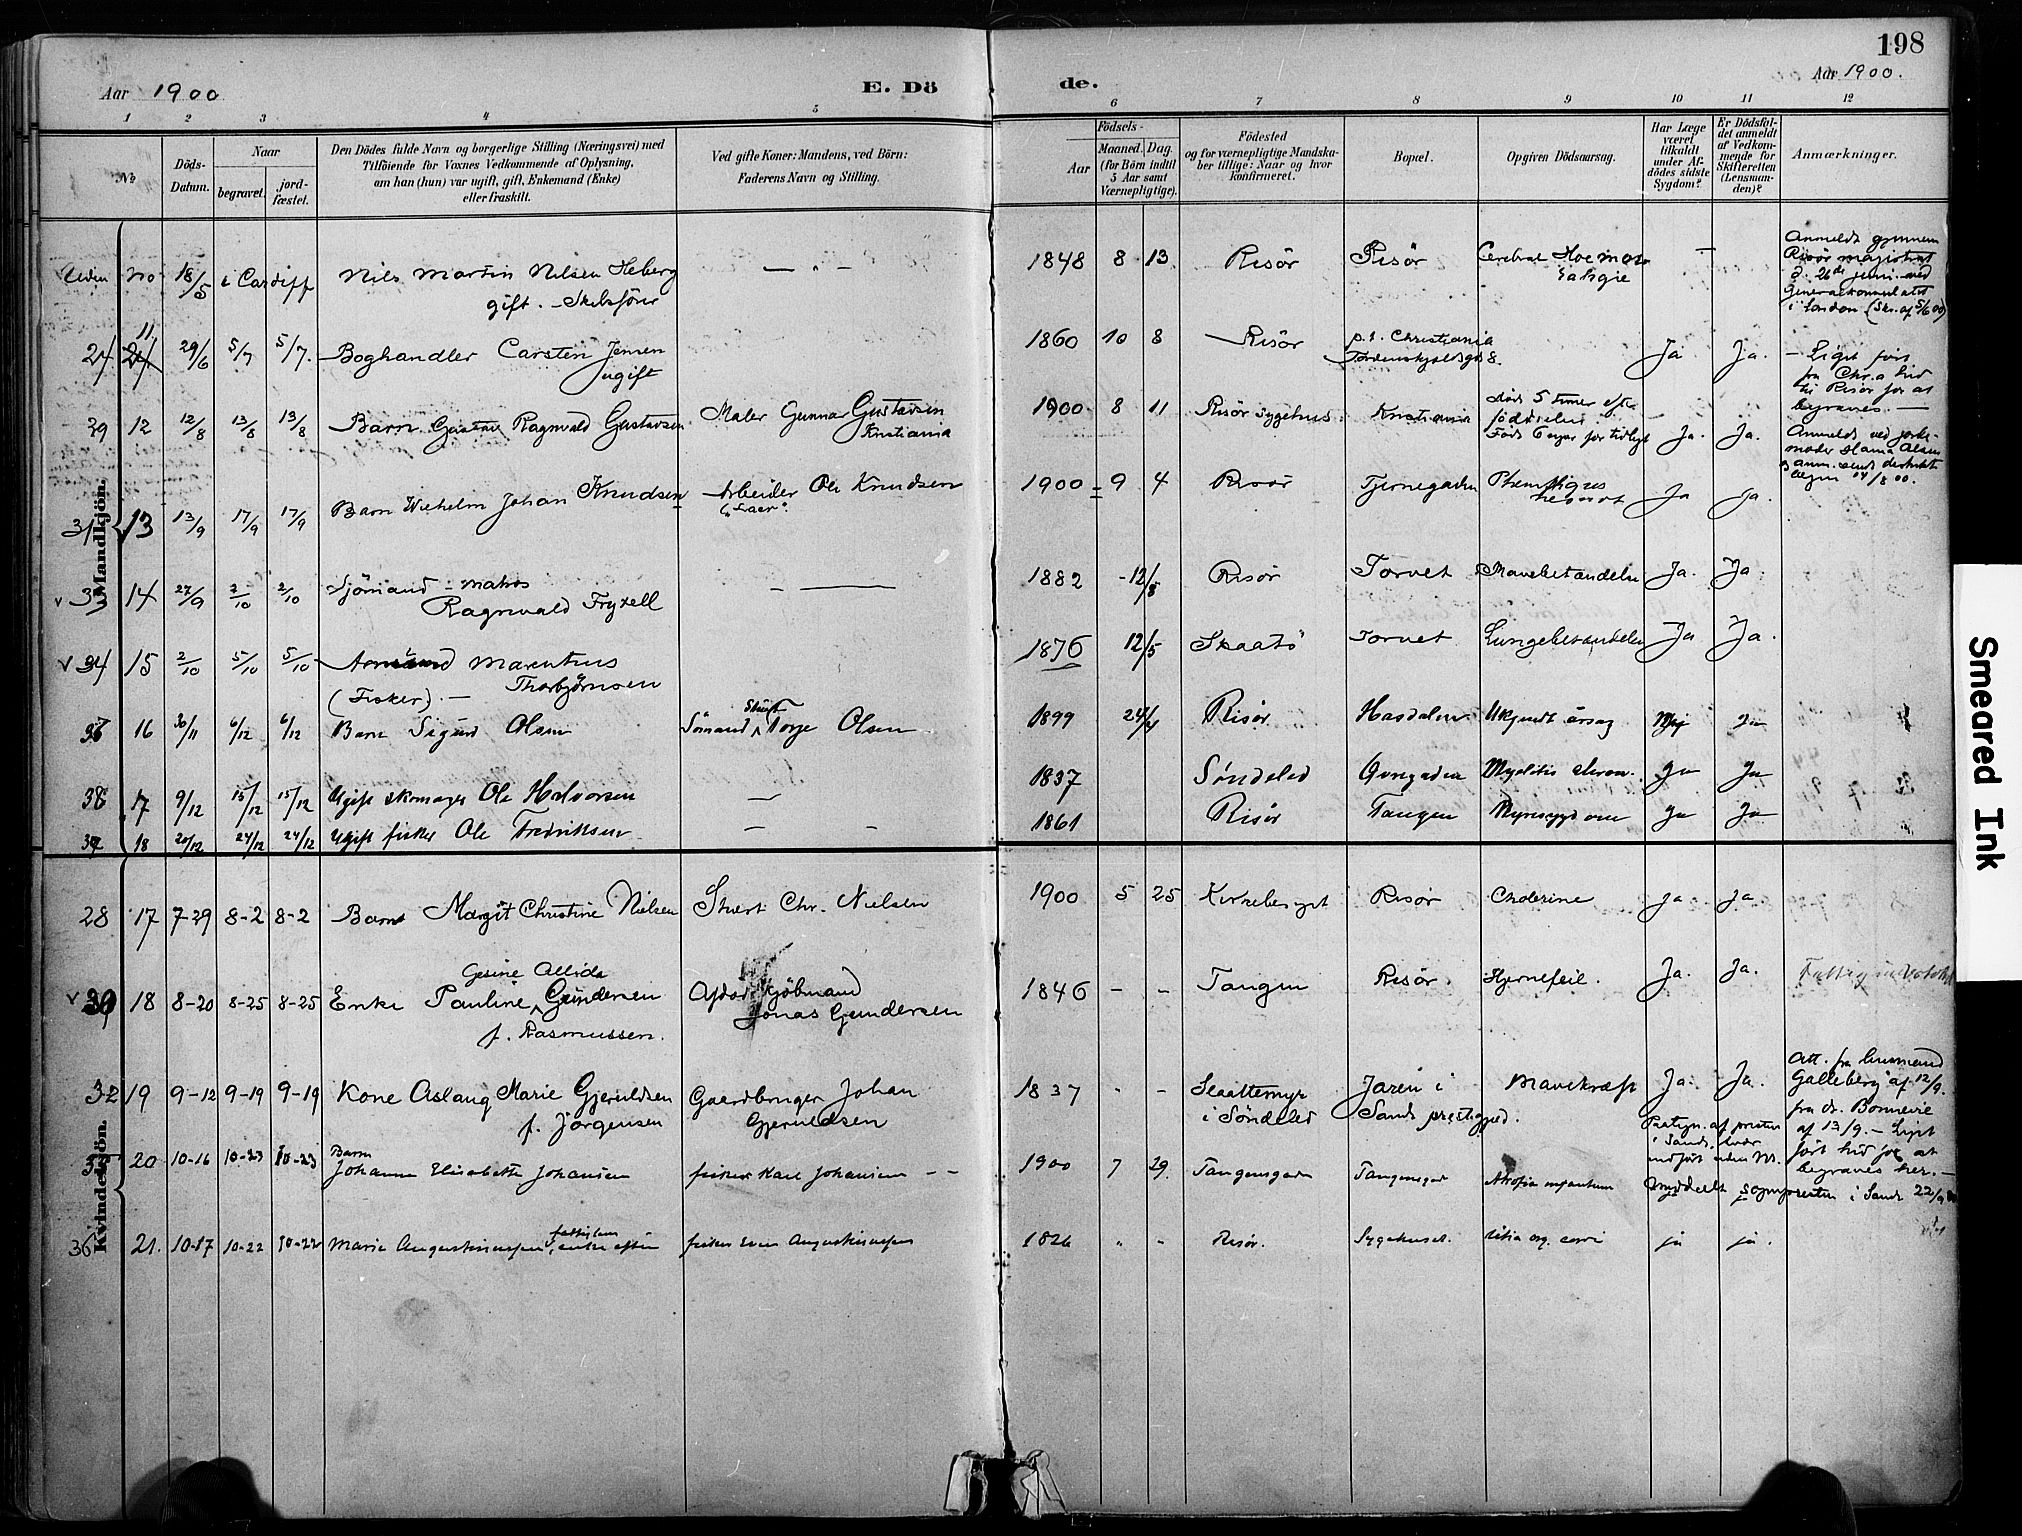 198
Aar 1900
E. Dö
de.
Aar 1900.
1 2 3 4 5 6 7 8 9 10 11 12
№
Döds-Datum.
Naar
begravet.
jord-fæstet.
Den Dödes fulde Navn og borgerlige Stilling (Næringsvei) med
Tilföiende for Voxnes Vedkommende af Oplysning,
om han (hun) var ugift, gift, Enkemand (Enke)
eller fraskilt.
Ved gifte Koner: Mandens, ved Börn:
Faderens Navn og Stilling.
Födsels-
Aar
Maaned. Dag.
(for Börn indtil
5 Aar samt
Værnepligtige).
Födested
og for værnepligtige Mandska-
ber tillige: Naar og hvor
konfirmeret.
Bopæl.
Opgiven Dödsaarsag.
Har Læge
været
tilkaldt
under Af-
dödes sidste
Sygdom?
Er Dödsfal-
det anmeldt
af Vedkom-
mende for
Skifteretten
(Lensman-
den)?
Anmærkninger.
Mandkjön.
Uden No 18/5 i Cardiff Nils Martin Nilsen Heberg
gift. Skibsförer
1848 8 13 Risör Risör Cerebral
Anmeldt gjennem
Risör magistrat
d. 26de juni ved
Generalkonsulatet
i London
24 11 29/6 5/7 5/7. Boghandler Carsten Jensen
ugift
1860 10 8 Risör p.t. Christiania
8. Ja Ja.
Liget ført
fra Chr.a hid
til Risør for at
begraves.
29 12 12/8 13/8 13/8 Barn Gustav Ragnvald Gustavsen Maler Gunnar Gustavsen
Kristiania
1900 8 11 Risör sygehus Kristiania död 5 timer efter
födselen.
Født 6 uger for tidligt Ja. Ja.
31 13 13/9 17/9 17/9 Barn Wilhelm Johan Knudsen Arbeider Ole Knudsen
1900 9 4 Risør Tjernegaden Ja Ja.
33 14 27/9 2/10 2/10 Sjømand - matros
Ragnvald Fryxell
1882 12/8 Risør Torvet Mavebetændelse Ja. Ja
34 15 2/10 5/10 5/10 Marentius
Thorbjørnsen
(Fisker). —
1876 12/5 Skaatö Torvet Lungebetændelse Ja Ja.
16 30/11 6/12 6/12 Barn Sigurd Olsen Sömand Torje Olsen
1899 24/4 Risør. Hasdalen Ukjendt årsag Nej Ja
38 17 9/12 15/12 15/12 Ugift skomager Ole Halvorsen
1837 Søndeled Myelitis chron. Ja Ja
39 18 20/12 24/12 24/12 Ugift fisker Ole Fredriksen
1861 Risør Tangen Nyresygdom Ja Ja
Kvindekjön.
28 17 7-29 8-2 8-2 Barn Margit Christine Nielsen Stuert Chr. Nielsen
1900 5 25 Kirkebesynt Risør Cholerine ja ja.
30 18 8-20 8-25 8-25 Enke Pauline Gesine Allida Gundersen
f. Rasmussen.
Afdöd Kjöbmand
Jonas Gundersen
1846 - - Tangen Risør. Hjernefeil. Ja. Ja.
32 19 9-12 9-19 9-19 Kone Aslaug Marie Gjeruldsen
f. Jörgensen
Gaardbruger Johan
Gjeruldsen
1837 - - Slaattemyr
i Søndeled
Jaren i
Sands prestegjeld.
Mavekræft Ja. Ja.
Att. fra Lensmand
Galleberg af 12/9.
fra dr. Bonnevie
af 13/9. - Liget
ført hid for at
begraves her. —
Meddelt sognepresten i Sand 22/9
35 20 10-16 10-23 10-23 Barn
Johanne Elisabeth Johansen fisker Karl Johansen - -
1900 7 29. Tangensgad Tangensgad Atrofia infantum
36 21. 10-17 10-22 10-22 Marie Augustinussen, enke efter fisker Augustinussen
1826 „ - Risør. Sygehuset. ja ja.
Smeared Ink